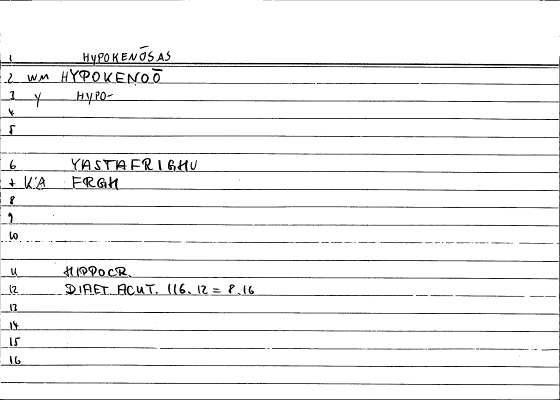 1 HYPOKENŌSAS
2 WM HYPOKENOŌ
3 Y HYPO-
4
5
6 YASTAFRIGHU
7 K'A FRGH
8
9
10
11 HIPPOCR.
12 DIAET. ACUT. 116.12 = 8.16
13
14
15
16